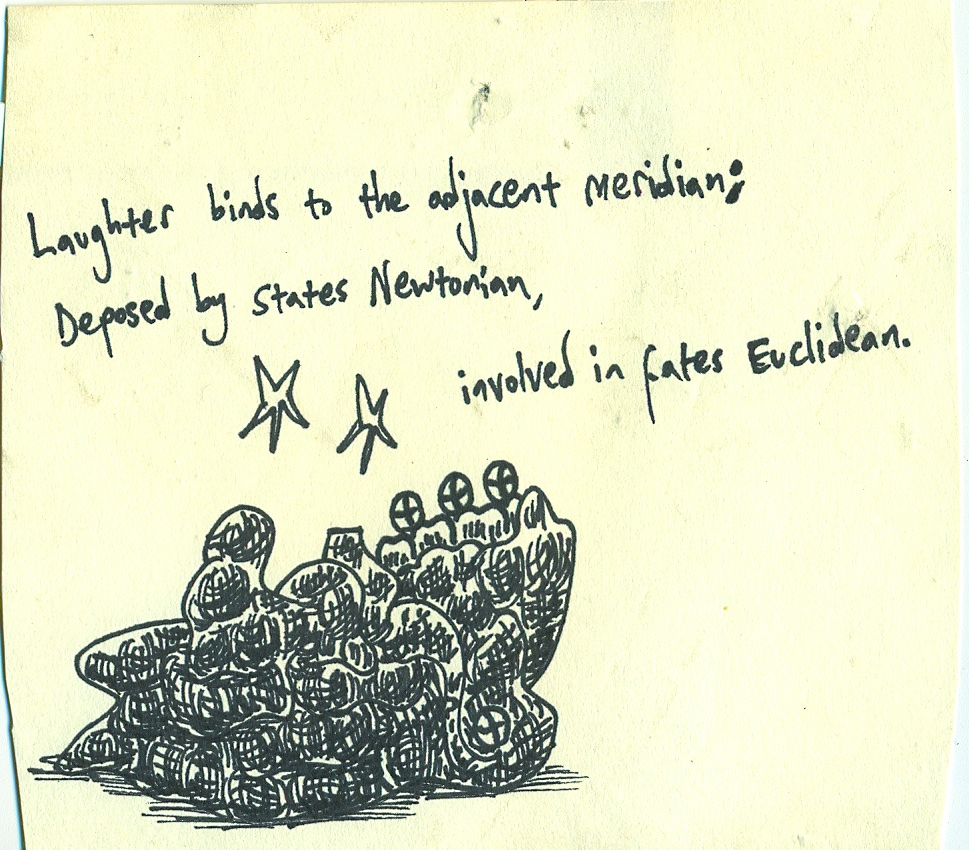 Laughter binds to the adjacent meridian;
Deposed by states Newtonian,
involved in fates Euclidean.